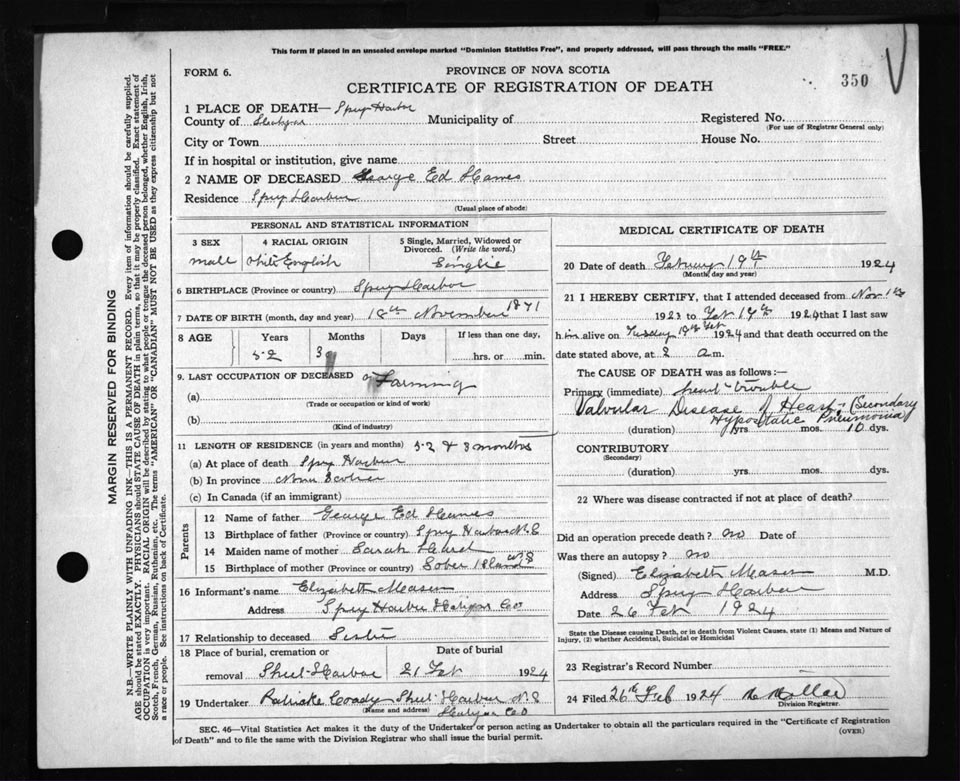 This form if placed in an unsealed envelope marked "Dominion Statistics Free", and properly addressed, will pass through the mails "FREE."
FORM 6.
PROVINCE OF NOVA SCOTIA
350
CERTIFICATE OF REGISTRATION OF DEATH
1 PLACE OF DEATH— Spry Harbor
County of Municipality of Registered No.
(For use of Registrar General only)
City or Town Street House No.
If in hospital or institution, give name
2 NAME OF DECEASED George Ed Hames
Residence Spry Harbour
(Usual place of abode)
PERSONAL AND STATISTICAL INFORMATION
3 SEX 4 RACIAL ORIGIN 5 Single, Married, Widowed or Divorced. (Write the word.)
male English Single
6 BIRTHPLACE (Province or country) Spry Harbor
7 DATE OF BIRTH (month, day and year) 18th November 1871
8 AGE Years Months Days If less than one day,
52 3 hrs. or min.
9. LAST OCCUPATION OF DECEASED Farming
(a)
(Trade or occupation or kind of work)
(b)
(Kind of industry)
11 LENGTH OF RESIDENCE (in years and months) 52 & 3 months
(a) At place of death Spry Harbour
(b) In province Nova Scotia
(c) In Canada (if an immigrant)
Parents
12 Name of father George Ed Hames
13 Birthplace of father (Province or country) Spry Harbour N.S
14 Maiden name of mother Sarah
15 Birthplace of mother (Province or country) Sober Island N S
16 Informant's name Elizabeth
Address Spry Harbor Halifax Co
17 Relationship to deceased Sister
18 Place of burial, cremation or Date of burial
removal Sheet-Harbour 21 Feb 1924
19 Undertaker Coady Sheet-Harbour N.S
(Name and address) Halifax Co
MEDICAL CERTIFICATE OF DEATH
20 Date of death February 19th 1924
(Month, day and year)
21 I HEREBY CERTIFY, that I attended deceased from Nov 1st
1923 to Feb 19th 1924 that I last saw
him alive on 1924 and that death occurred on the
date stated above, at 2 a m.
The CAUSE OF DEATH was as follows:—
Primary (immediate) heart trouble
Valvular Disease of Heart: (Secondary
Hypostatic Pneumonia)
(duration) yrs. mos. 10 dys.
CONTRIBUTORY
(Secondary)
(duration) yrs. mos. dys.
22 Where was disease contracted if not at place of death?
Did an operation precede death? No Date of
Was there an autopsy? No
(Signed) Elizabeth M.D.
Address Spry Harbour
Date 26 Feb 1924
State the Disease causing Death, or in death from Violent Causes, state (1) Means and Nature of
Injury, (2) whether Accidental, Suicidal or Homicidal
23 Registrar's Record Number
24 Filed 26th Feb 1924
Division Registrar.
SEC. 46—Vital Statistics Act makes it the duty of the Undertaker or person acting as Undertaker to obtain all the particulars required in the "Certificate of Registration
of Death" and to file the same with the Division Registrar who shall issue the burial permit.
(OVER)
MARGIN RESERVED FOR BINDING
N.B.—WRITE PLAINLY WITH UNFADING INK—THIS IS A PERMANENT RECORD. Every item of information should be carefully supplied.
AGE should be stated EXACTLY. PHYSICIANS should STATE CAUSE OF DEATH in plain terms, so that it may be properly classified. Exact statement of
OCCUPATION is very important. RACIAL ORIGIN will be described by stating to what people or tongue the deceased person belonged, whether English, Irish,
Scotch, French, German, Russian, Ruthenian, etc. The terms "AMERICAN" or "CANADIAN" MUST NOT BE USED as they express citizenship but not
a race or people. See instructions on back of Certificate.